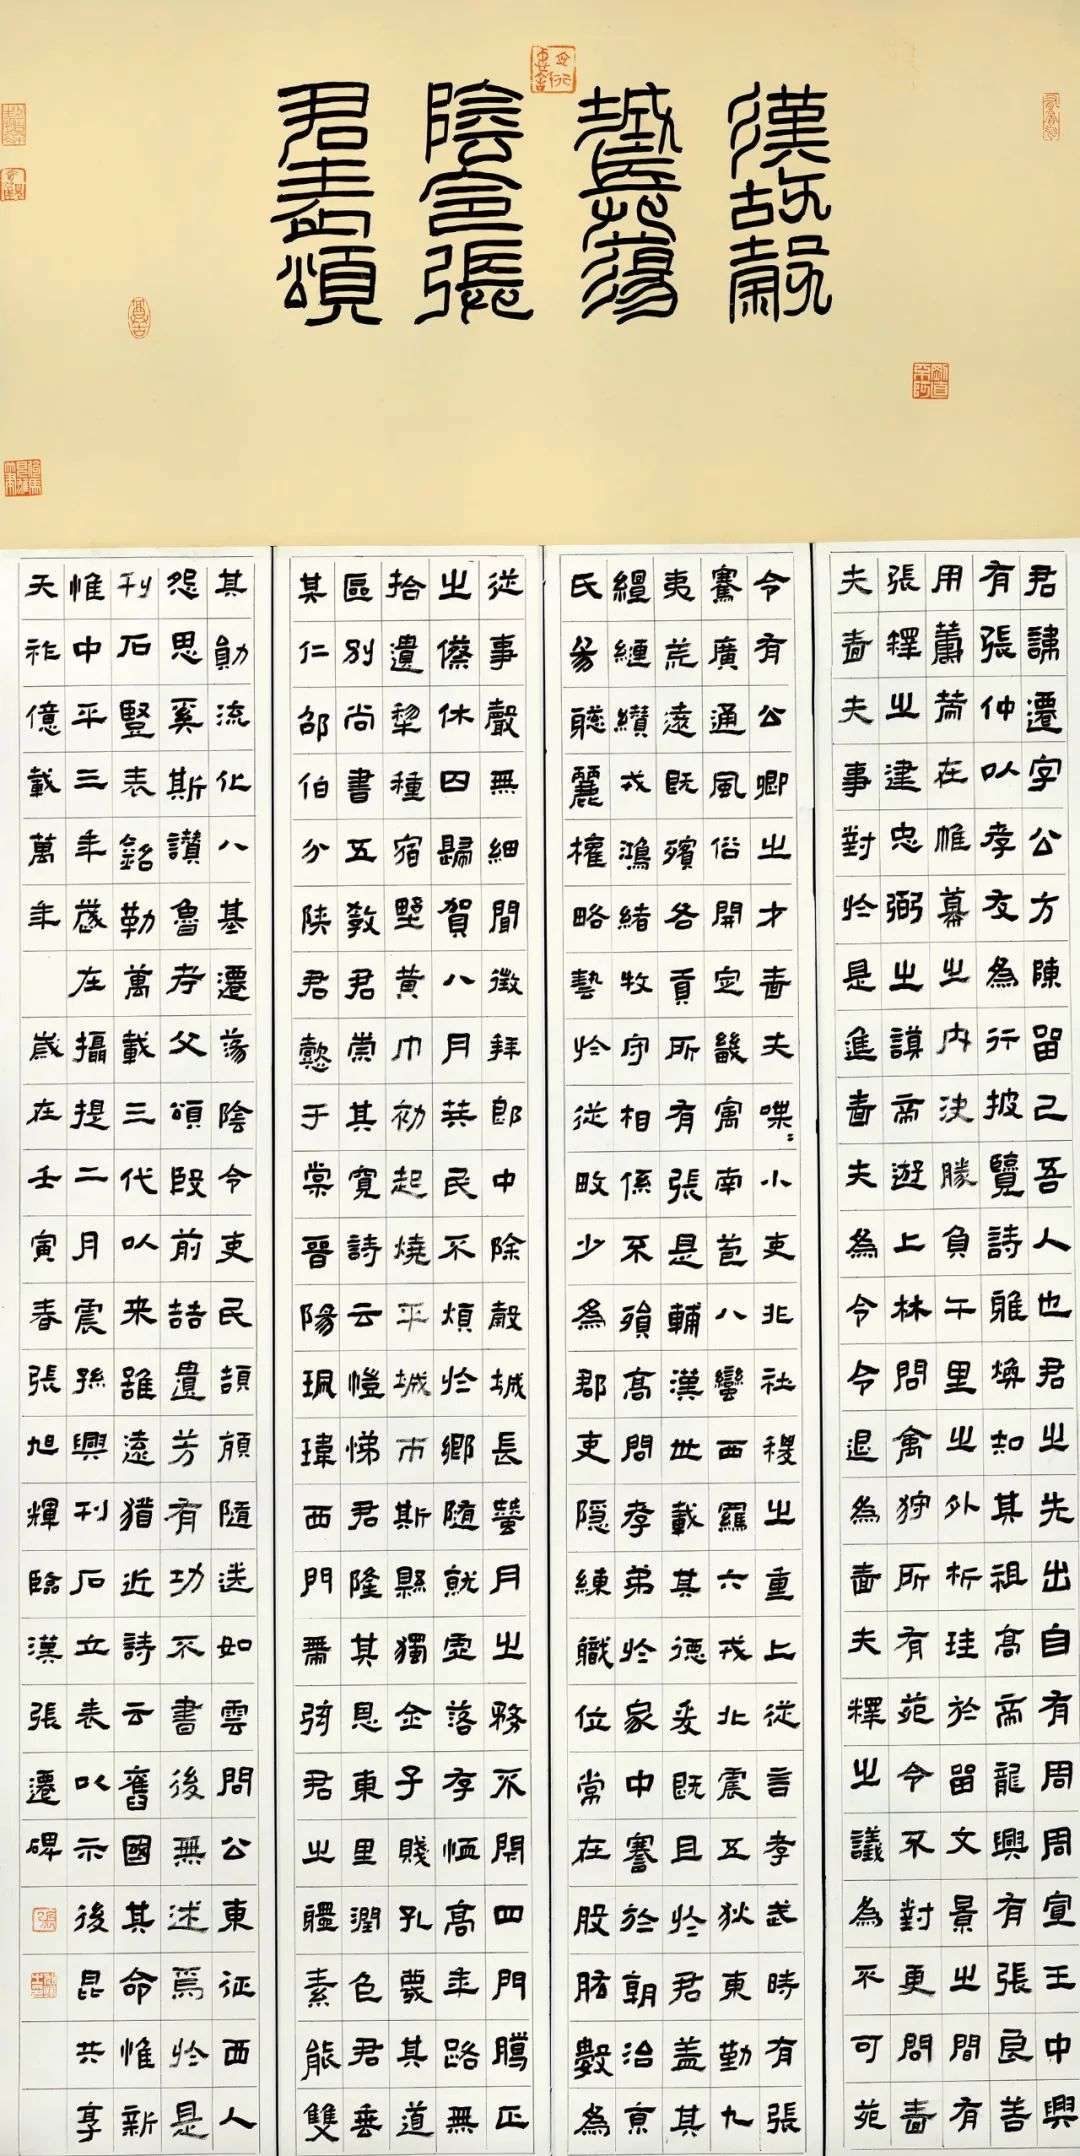 漢故穀
城長蕩
陰令張
君表頌
君諱遷字公方陳留己吾人也君之先出自有周周宣王中興
有張仲以孝友為行披覽詩雅煥知其祖高帝龍興有張良善
用籌策在帷幕之內決勝負千里之外析珪於留文景之間有
張釋之建忠弼之謨帝遊上林問禽狩所有苑令不對更問嗇
夫嗇夫事對於是進嗇夫為令令退為嗇夫釋之議為不可苑
令有公卿之才嗇夫喋〻小吏非社稷之重上從言孝武時有張
騫廣通風俗開定畿寓南苞八蠻西羈六戎北震五狄東勤九
夷荒遠既殯各貢所有張是輔漢世載其德爰既且於君蓋其
纏縺纘戎鴻緒牧守相係不殞高問孝弟於家中謇於朝治京
氏易聰麗權略藝於從畋少為郡吏隱練職位常在股肱數為
從事聲無細聞徵拜郎中除穀城長蠶月之務不閉四門臘正
之僚休囚歸賀八月算民不煩於鄉隨就虛落存恤高年路無
拾遺犁種宿野黃巾初起燒平城市斯縣獨全子賤孔蔑其道
區別尚書五教君崇其寬詩云愷悌君隆其恩東里潤色君垂
其仁邵伯分陝君懿于棠晉陽珮瑋西門帶弦君之體素能雙
其勛流化八基遷蕩陰令吏民頡頏隨送如雲周公東征西人
怨思奚斯讚魯考父頌殷前喆遺芳有功不書後無述焉於是
刊石豎表銘勒萬載三代以來雖遠猶近詩云舊國其命惟新
惟中平三年歲在攝提二月震孫興刊石立表以示後昆共享
天祚億載萬年 歲在壬寅春張旭輝臨漢張遷碑